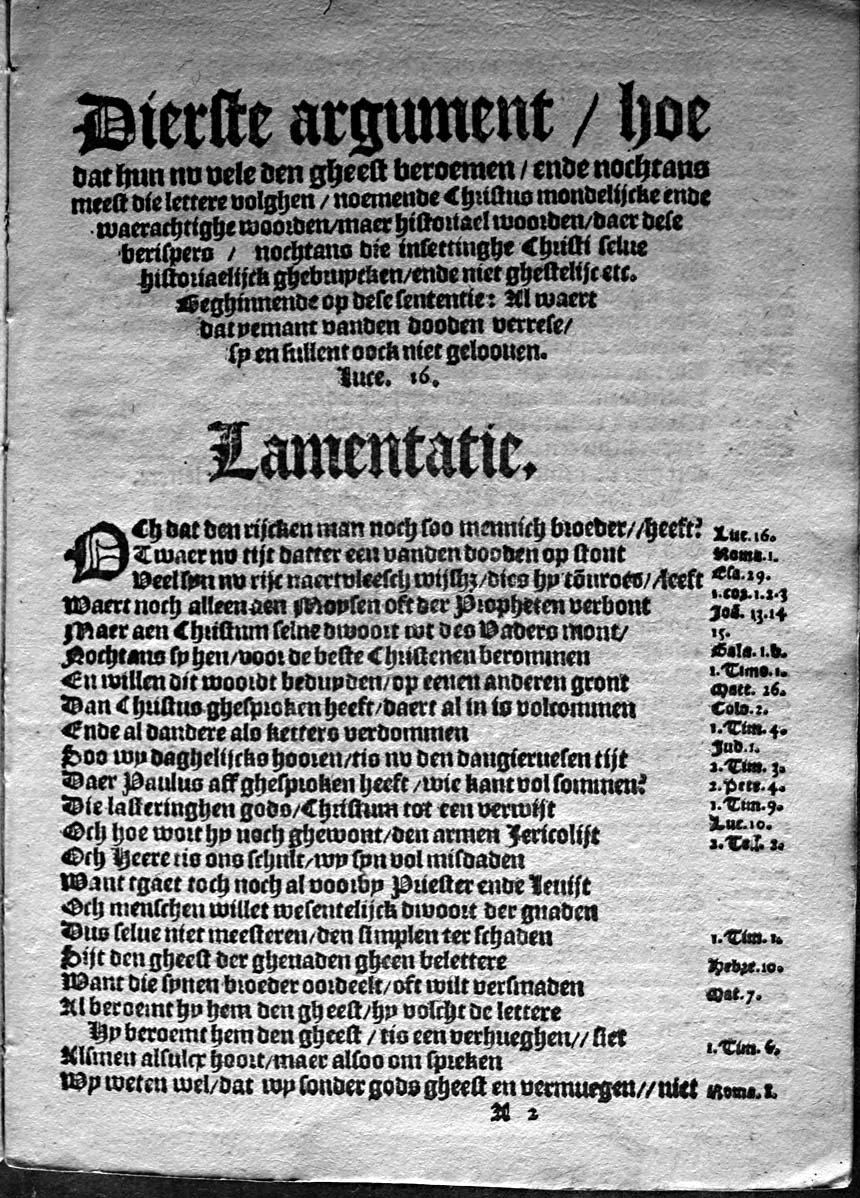 Dierste argument / hoe
dat hun nv vele den gheest beroemen / ende nochtans
meest die lettere volghen / noemende Christus mondelijcke ende
waerachtighe woorden/maer historiael woorden/daer dese
berispers / nochtans die insettinghe Christi selue
historiaelijck ghebruycken/ende niet ghestelijc etc.
Beghinnende op dese sententie: Al waert
dat yemant vanden dooden verrese/
sy en sullent oock niet gelooven.
Luce. 16.
Lamentatie.
OCh dat den rijcken man noch soo mennich broeder//heeft? Luc. 16.
Twaer nv tijt datter een vanden dooden op stont Roma. 1.
Veel syn nv rijc naert vleesch /dies hy /leeft Esa. 29.
1. cor. 1. 2. 3
Waert noch alleen aen Moysen oft der Propheten verbont Joã. 13. 14
Maer aen Christum selue dwoort wt des Vaders mont/ 15.
Nochtans sy hen/voor de beste Christenen berommen Gala. 1. b.
En willen dit woordt beduyden/op eenen anderen gront 1. Timo. 1.
Matt. 26.
Dan Christus ghesproken heeft/daert al in is volcommen Colo. 2.
Ende al dandere als ketters verdommen 1. Tim. 4.
Jud. 1.
Soo wy daghelijcks hooren/tis nv den dangieruesen tijt 2. Tim. 3.
Daer Paulus aff ghesproken heeft /wie kant vol sommen? 2. Petr. 4.
Die lasteringhen gods/Christum tot een verwijt 1. Tim. 9.
Och hoe wort hy noch ghewont/den armen Jericolijt Luc. 10.
Och Heere tis ons schult/wy syn vol misdaden 2. 2.
Want tgaet toch noch al voorby Priester ende Leuijt
Och menschen willet wesentelijck dwoort der gnaden
Dus selue niet meesteren/den simplen ter schaden 1. Tim. 1.
Sijt den gheest der ghenaden gheen belettere Hebre. 10.
Want die synen broeder oordeelt/oft wilt versmaden Mat. 7.
Al beroemt hy hem den gheest/hy volcht de lettere
Hy beroemt hem den gheest /tis een verhueghen//siet
Alsmen alsulcx hoort/maer alsoo om spreken 1. Tim. 6.
Wy weten wel/dat wy sonder gods gheest en vermuegen//niet Roma. 8.
A 2